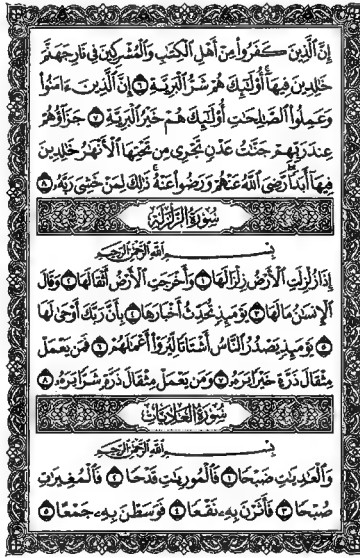 إِنَّ الَّذِينَ كَفَرُوا مِنْ أَهْلِ الْكِتَٰبِ وَالْمُشْرِكِينَ فِي نَارِ جَهَنَّمَ
خَٰلِدِينَ فِيهَا أُو۟لَٰٓئِكَ هُمْ شَرُّ الْبَرِيَّةِ ٦ إِنَّ الَّذِينَ ءَامَنُوا
وَعَمِلُوا الصَّٰلِحَٰتِ أُو۟لَٰٓئِكَ هُمْ خَيْرُ الْبَرِيَّةِ ٧ جَزَآؤُهُمْ
عِندَ رَبِّهِمْ جَنَّٰتُ عَدْنٍ تَجْرِي مِن تَحْتِهَا الْأَنْهَٰرُ خَٰلِدِينَ
فِيهَا أَبَدًا رَّضِيَ اللَّهُ عَنْهُمْ وَرَضُوا عَنْهُ ذَٰلِكَ لِمَنْ خَشِيَ رَبَّهُ ٨
سُورَةُ الزَّلْزَلَةِ
بِسْمِ اللَّهِ الرَّحْمَٰنِ الرَّحِيمِ
إِذَا زُلْزِلَتِ الْأَرْضُ زِلْزَالَهَا ١ وَأَخْرَجَتِ الْأَرْضُ أَثْقَالَهَا ٢ وَقَالَ
الْإِنسَٰنُ مَا لَهَا ٣ يَوْمَئِذٍ تُحَدِّثُ أَخْبَارَهَا ٤ بِأَنَّ رَبَّكَ أَوْحَىٰ لَهَا
٥ يَوْمَئِذٍ يَصْدُرُ النَّاسُ أَشْتَاتًا لِّيُرَوْا أَعْمَٰلَهُمْ ٦ فَمَن يَعْمَلْ
مِثْقَالَ ذَرَّةٍ خَيْرًا يَرَهُ ٧ وَمَن يَعْمَلْ مِثْقَالَ ذَرَّةٍ شَرًّا يَرَهُ ٨
سُورَةُ الْعَادِيَاتِ
بِسْمِ اللَّهِ الرَّحْمَٰنِ الرَّحِيمِ
وَالْعَٰدِيَٰتِ ضَبْحًا ١ فَالْمُورِيَٰتِ قَدْحًا ٢ فَالْمُغِيرَٰتِ
صُبْحًا ٣ فَأَثَرْنَ بِهِ نَقْعًا ٤ فَوَسَطْنَ بِهِ جَمْعًا ٥